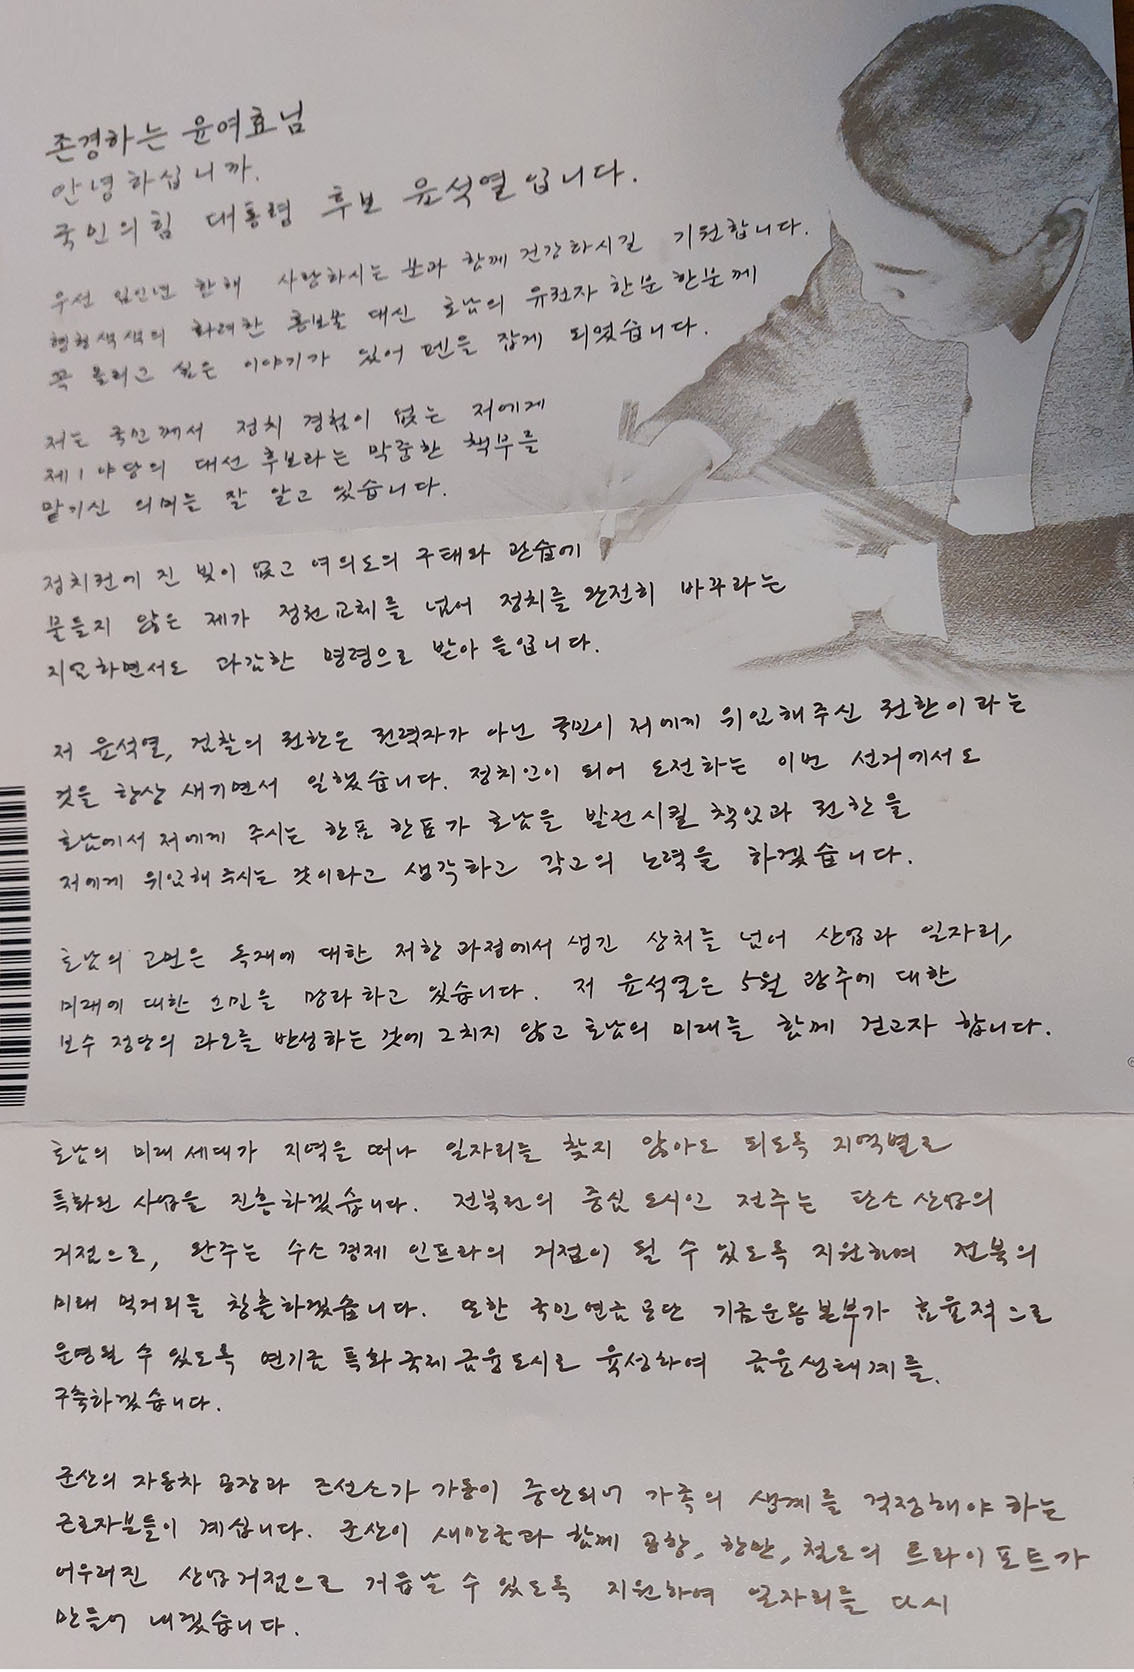 존경하는 윤여효님
안녕하십니까.
국민의힘 대통령 후보 윤석열입니다.
우선 임인년 한해 사랑하시는 분과 함께 건강하시길 기원합니다.
형형색색의 화려한 홍보물 대신 호남의 유권자 한분 한분께
꼭 올리고 싶은 이야기가 있어 펜을 잡게 되었습니다.
저는 국민께서 정치 경험이 없는 저에게
제1야당의 대선 후보라는 막중한 책무를
맡기신 의미는 잘 알고 있습니다.
정치권에 진 빚이 없고 여의도의 구태와 관습에
물들지 않은 제가 정권교체를 넘어 정치를 완전히 바꾸라는
지엄하면서도 과감한 명령으로 받아 들입니다.
저 윤석열, 검찰의 권한은 권력자가 아닌 국민이 저에게 위임해주신 권한이라는
것을 항상 새기면서 일했습니다. 정치인이 되어 도전하는 이번 선거에서도
호남에서 저에게 주시는 한표 한표가 호남을 발전시킬 책임과 권한을
저에게 위임해 주시는 것이라고 생각하고 각고의 노력을 하겠습니다.
호남의 고민은 독재에 대한 저항 과정에서 생긴 상처를 넘어 산업과 일자리,
미래에 대한 고민을 망라하고 있습니다. 저 윤석열은 5월 광주에 대한
보수 정당의 과오를 반성하는 것에 그치지 않고 호남의 미래를 함께 걷고자 합니다.
호남의 미래 세대가 지역을 떠나 일자리를 찾지 않아도 되도록 지역별로
특화된 사업을 진흥하겠습니다. 전북권의 중심 도시인 전주는 탄소산업의
거점으로, 완주는 수소경제 인프라의 거점이 될 수 있도록 지원하여 전북의
미래 먹거리를 창출하겠습니다. 또한 국민연금공단 기금운용본부가 효율적으로
운영될 수 있도록 연기금 특화 국제금융도시로 육성하여 금융생태계를
구축하겠습니다.
군산의 자동차 공장과 조선소가 가동이 중단되어 가족의 생계를 걱정해야 하는
근로자분들이 계십니다. 군산이 새만금과 함께 공항, 항만, 철도의 트라이포트가
어우러진 산업거점으로 거듭날 수 있도록 지원하여 일자리를 다시
만들어 내겠습니다.